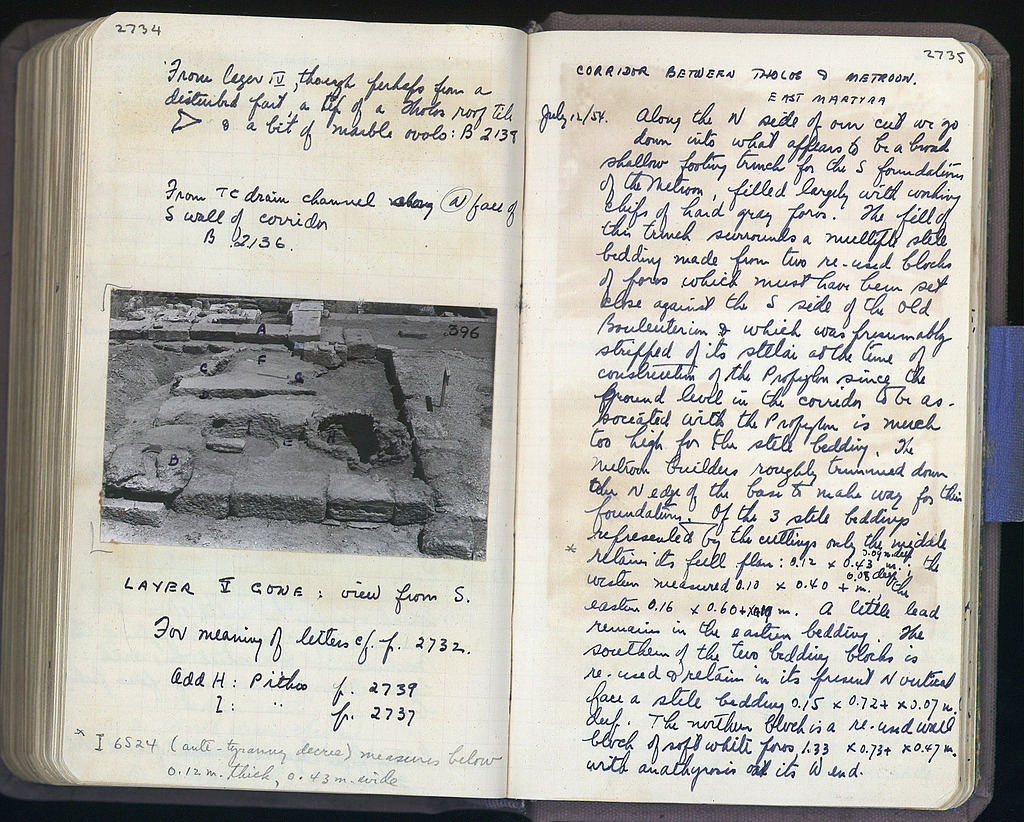 2734
From layer IV, though perhaps from a
disturbed part, a bit of a Tholos roof tile
& a bit of marble ovols: B 2139
From TC drain channel along N face of
S wall of corridor
B 2136.
396
A
C
F
G
B
E
H
LAYER V GONE: view from S.
For meaning of letters cf. p. 2732.
Add H: Pithos p. 2739
I: " p. 2737
* I 6524 (anti-tyranny decree) measures below
0.12 m. thick, 0.43 m. wide
2735
CORRIDOR BETWEEN THOLOS & METROON.
EAST MARTYRA
July 12/54. Along the N side of our cut we go
down into what appears to be a broad
shallow footing trench for the S foundations
of the Metroon, filled largely with working
chips of hard gray poros. The fill of
this trench surrounds a multiple stele
bedding made from two re-used blocks
of poros which must have been set
close against the S side of the old
Bouleuterion & which was presumably
stripped of its stelai at the time of
construction of the Propylon since the
ground level in the corridor to be as-
sociated with the Propylon is much
too high for the stele bedding. The
Metroon builders roughly trimmed down
the N edge of the base to make way for their
foundations. Of the 3 stele beddings
represented by the cuttings only the middle
* retains its full plan: 0.12 x 0.43 m. 0.09 m deep; the
western measured 0.10 x 0.40 + m. 0.08 deep, the
eastern 0.16 x 0.60+ m. A little lead
remains in the eastern bedding. The
southern of the two bedding blocks is
re-used & retain in its present N vertical
face a stele bedding 0.15 x 0.72+ x 0.07 m.
deep. The northern block is a re-used wall
block of soft white poros 1.33 x 0.73+ x 0.47 m.
with anathyrosis at its W end.